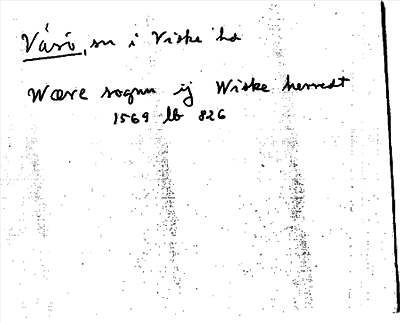 Värö, sn i Viske hd
Wære sognn ij Wiske herredt
1569 lb 826